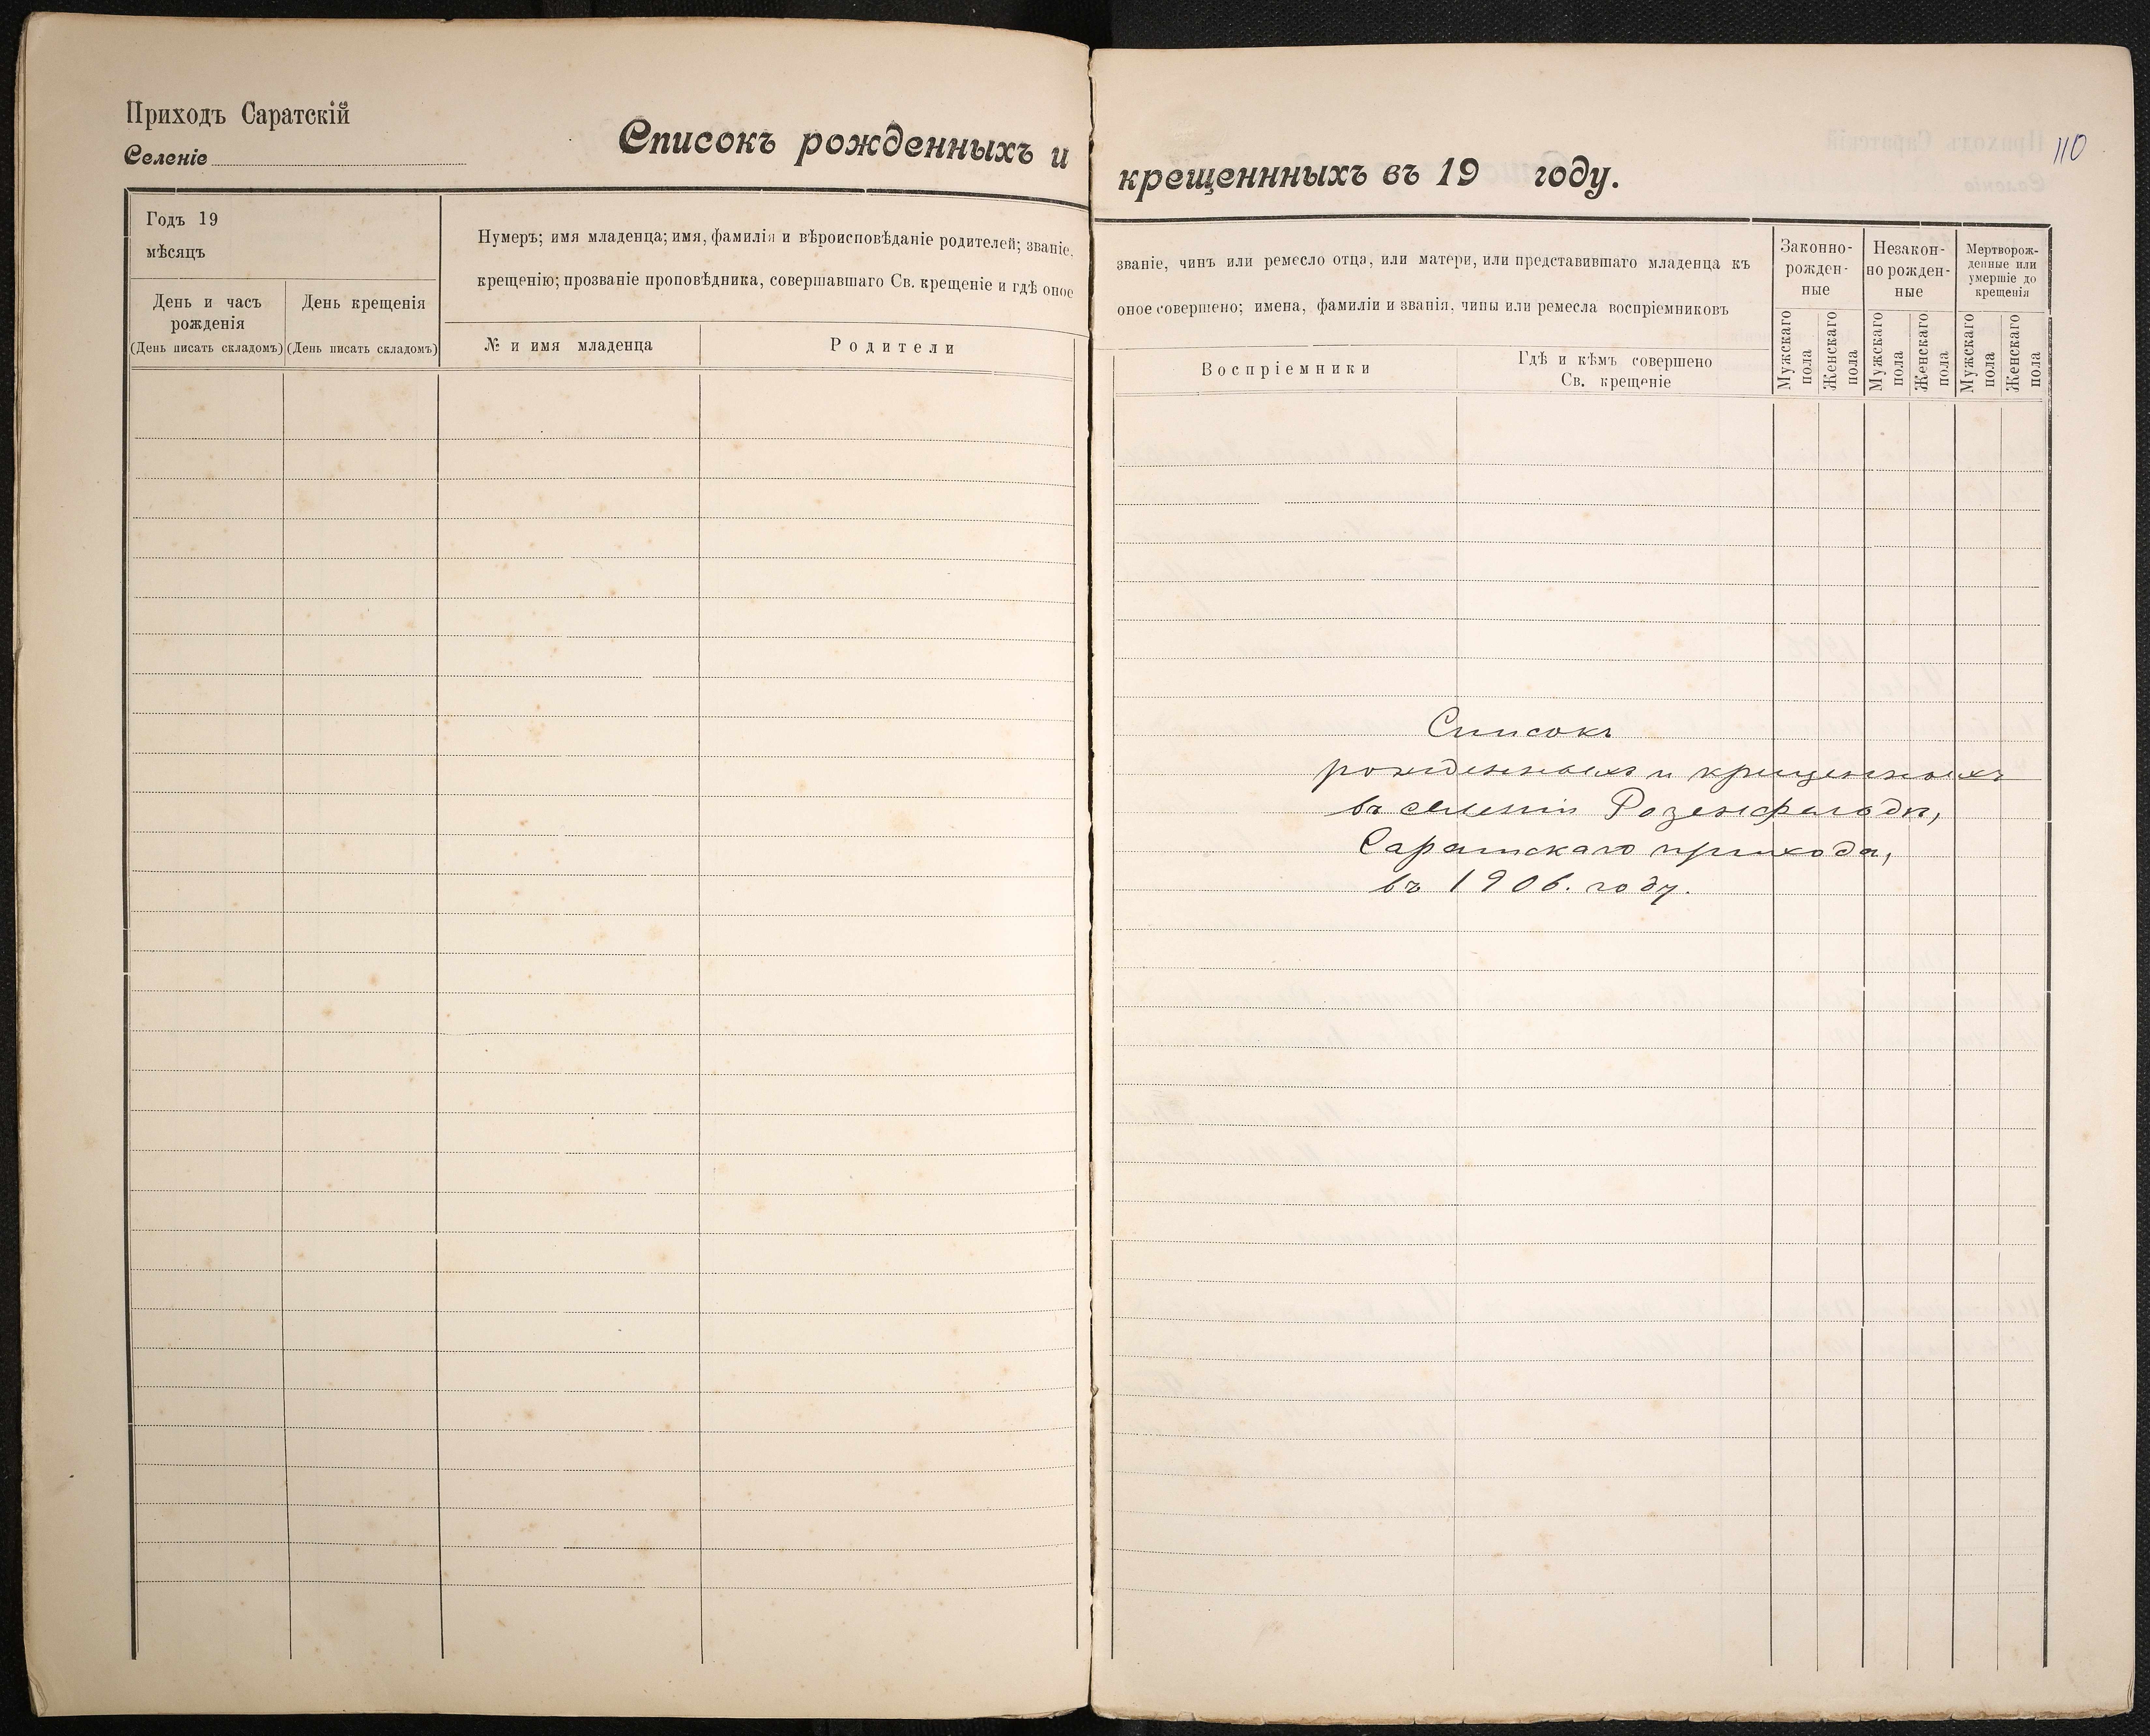 Приходъ Саратскій
Селеніе
Списокъ рожденныхъ и
крещеннныхъ въ 19 году.
110
Годъ 19
мѣсяцъ
День и часъ
рожденія
(День писать складомъ)
День крещенія
(День писать складомъ)
Нумеръ; имя младенца; имя, фамилія и вѣроисповѣданіе родителей; званіе,
крещенію; прозваніе проповѣдника, совершавшаго Св. крещеніе и гдѣ оное
№ и имя младенца
Родители
званіе, чинъ или ремесло отца, или матери, или представившаго младенца къ
оное совершено; имена, фамиліи и званія, чины или ремесла воспріемниковъ
Воспріемники
Гдѣ и кѣмъ совершено
Св. крещеніе
Законно-
рожден-
ные
Незакон-
но рожден-
ные
Мертворож-
денные или
умершіе до
крещенія
Мужскаго
пола
Женскаго
пола
Мужскаго
пола
Женскаго
пола
Мужскаго
пола
Женскаго
пола
Списокъ
рожденныхъ и крещенныхъ
въ селеніи Розенфельдѣ,
Саратскаго прихода,
въ 1906. году.